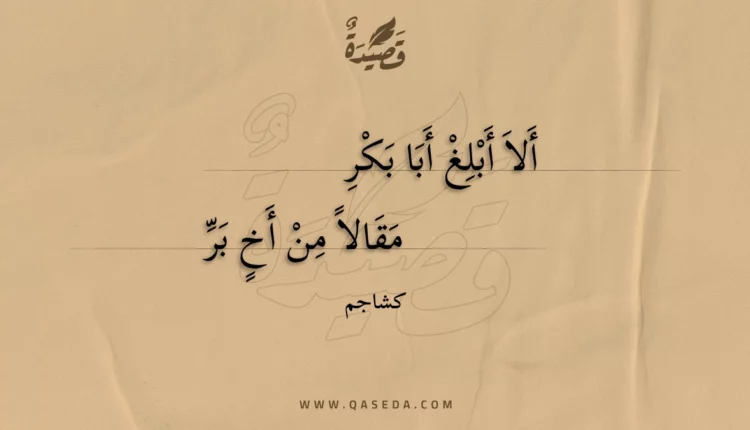 قَصِيدَةٌ
أَلاَ أَبْلِغْ أَبَا بَكْرِ
مَقَالاً مِنْ أَخٍ بَرِّ
كشاجم
WWW.QASEDA.COM